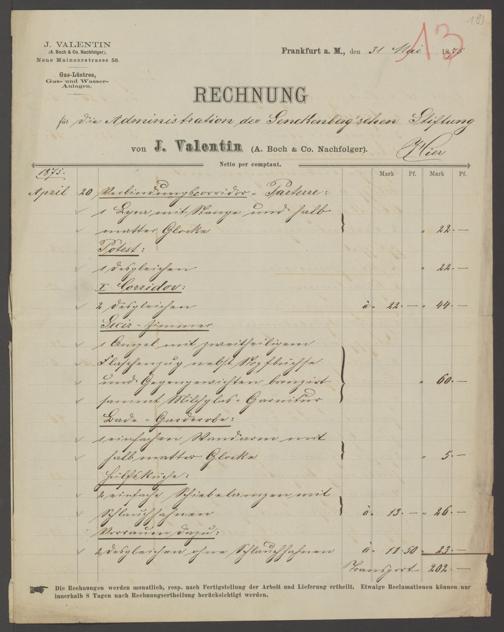 183
J. VALENTIN
(A. Boch & Co. Nachfolger).
Neue Mainzerstrasse 58.
Gas-Lüstres,
Gas- und Wasser-
Anlagen.
Frankfurt a. M., den 31 Mai 1875
13
RECHNUNG
für die Administration der Senckenberg'schen Stiftung
von J. Valentin (A. Boch & Co. Nachfolger). Hier
Netto per comptant.
1875. Mark Pf. Mark Pf.
April 20 Verbindungscorridor - Parterre:
1 Lyra mit Stange und halb
matter Glocke " 22. —
1 desgleichen " 22. —
I. Corridor:
2 desgleichen à 22. — " 44. —
Secir-Zimmer
1 Ampel mit zweitheiligem
Flaschenzug nebst Stopfbüchse
und Gegengewichten bronzirt
sammt Milchglas-Garnitur " 60. —
Bade-Garderobe:
1 einfachen Wandarm mit
halbmatter Glocke " 5. —
2 einfache Schiebelampen mit
Schlauchhahnen à 13. — " 26. —
2 desgleichen ohne Schlauchhahnen à 11 50 " 23. —
Transport 202. —
Die Rechnungen werden monatlich, resp. nach Fertigstellung der Arbeit und Lieferung ertheilt. Etwaige Reclamationen können nur
innerhalb 8 Tagen nach Rechnungsertheilung berücksichtigt werden.